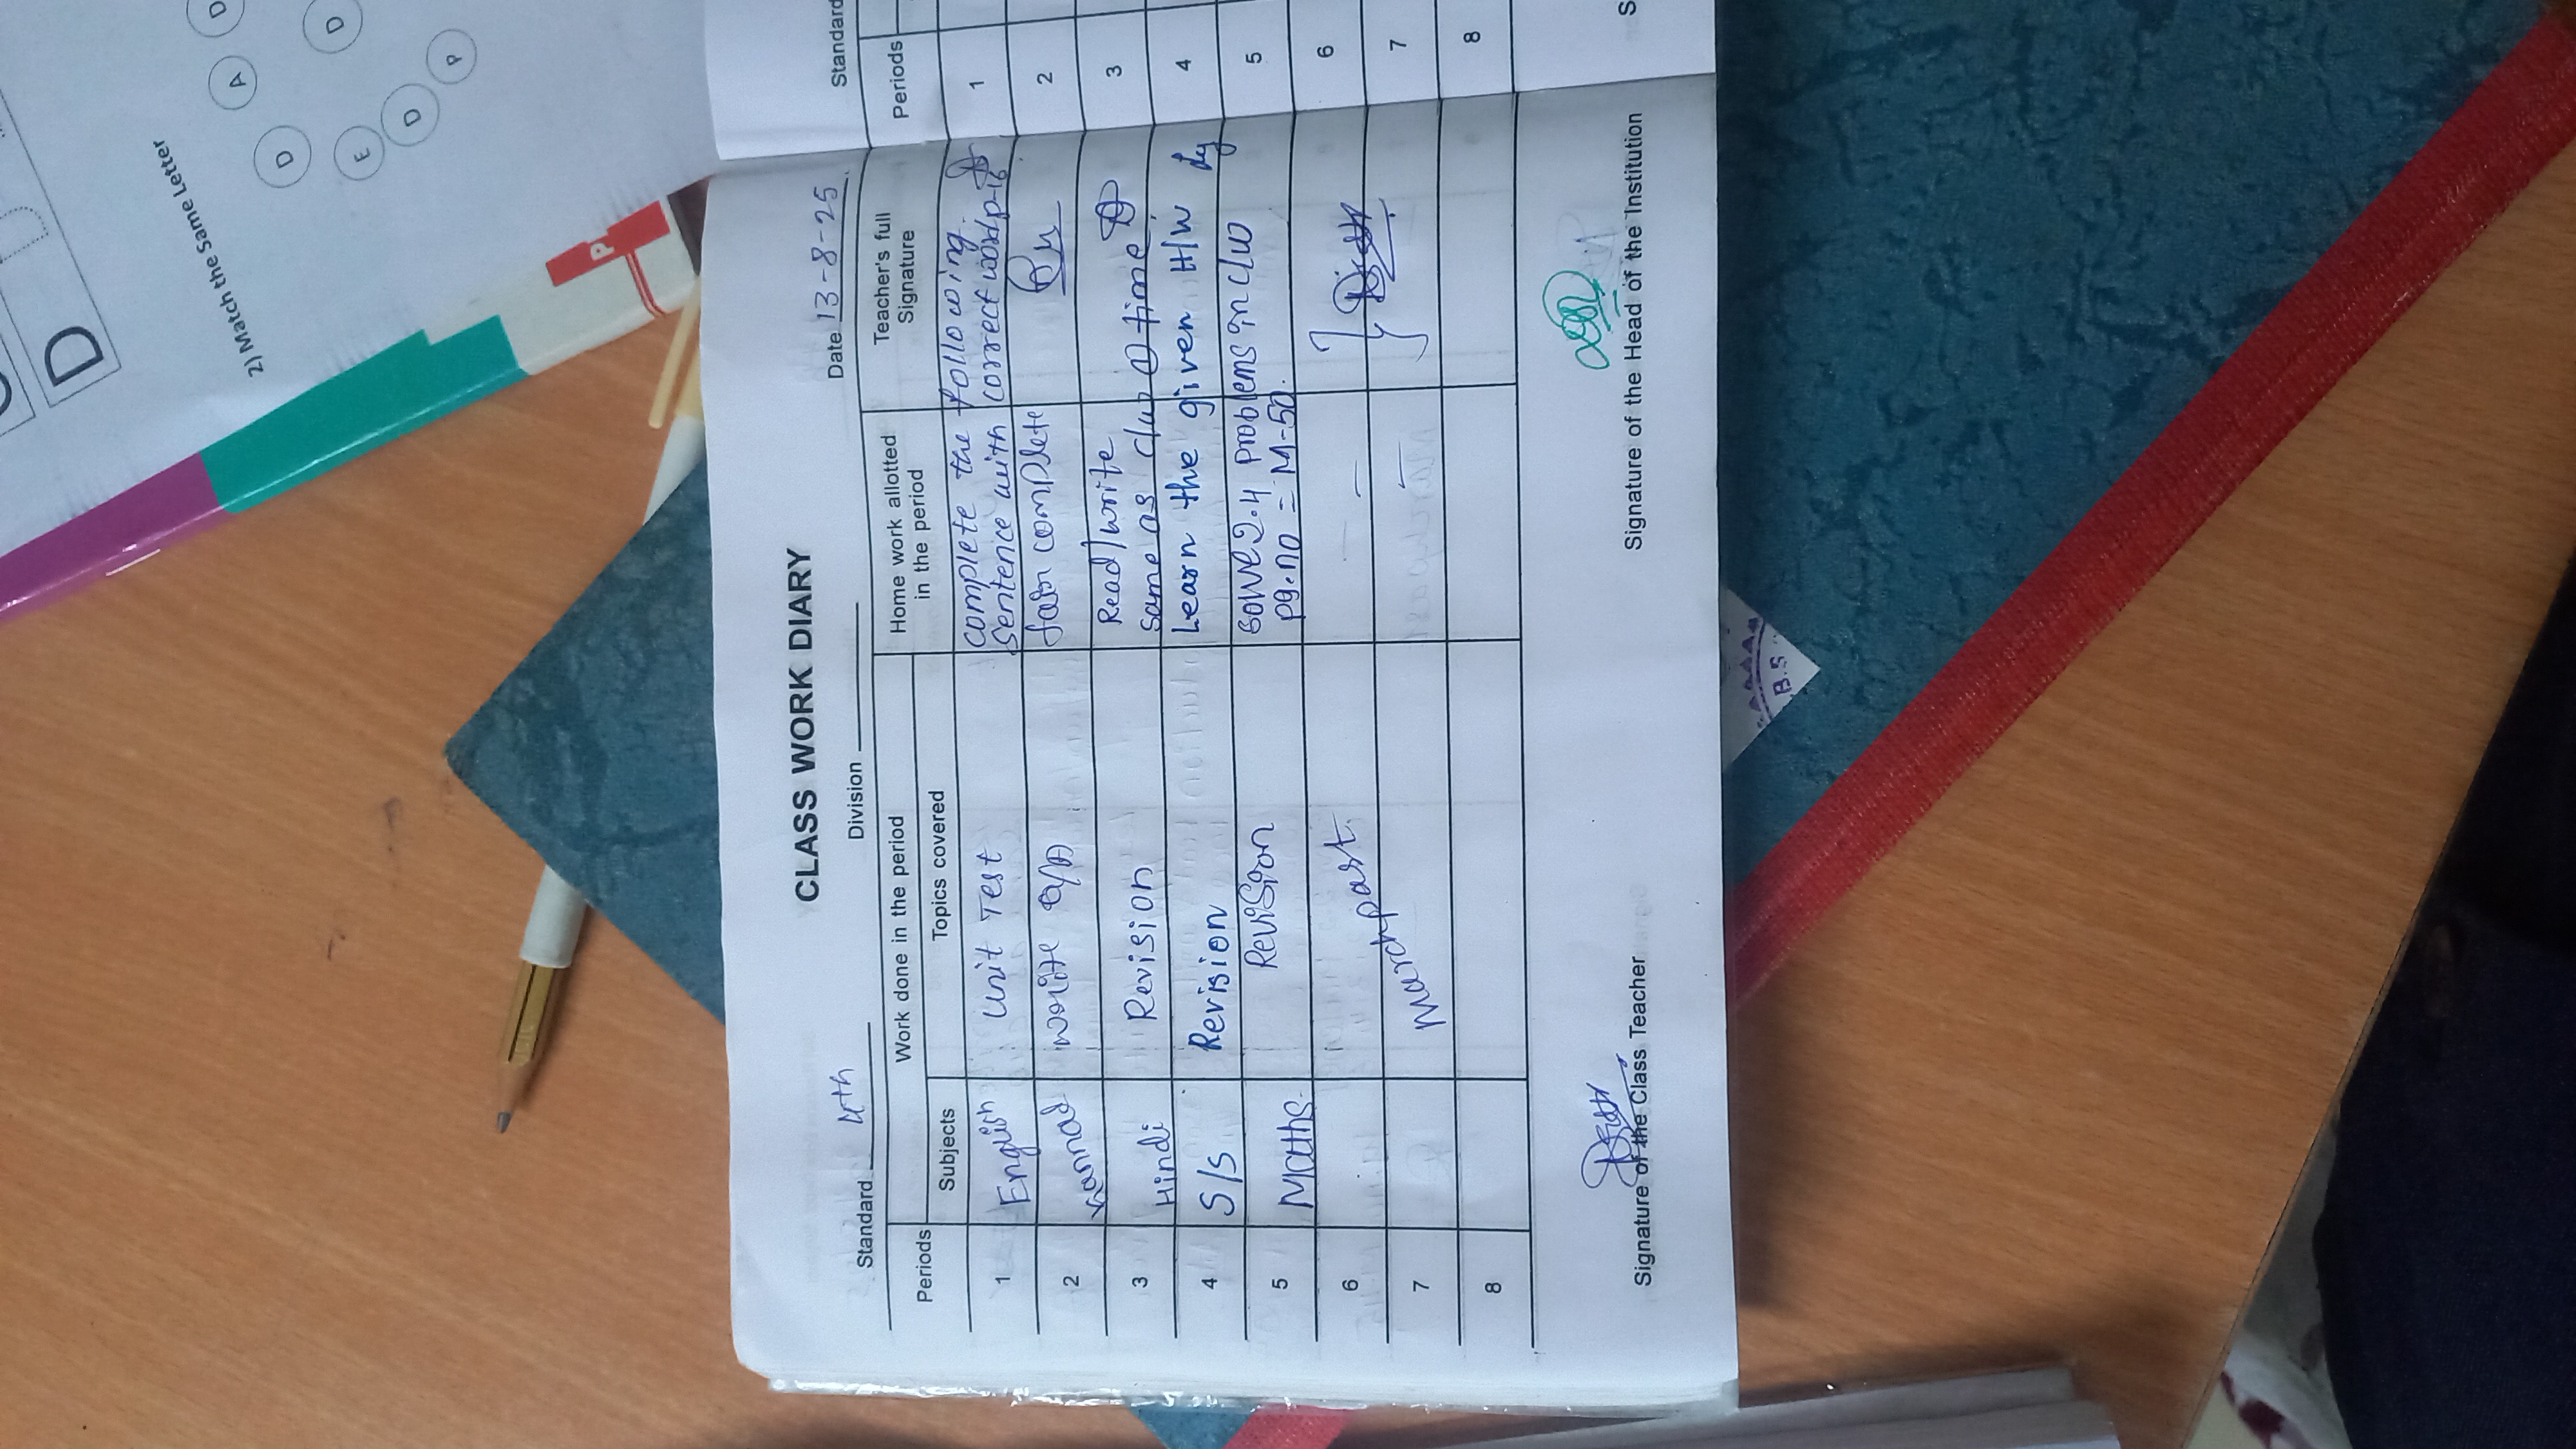 CLASS WORK DIARY
Standard 4th Division Date 13-8-25
Periods Work done in the period Home work allotted in the period Teacher's full Signature
Subjects Topics covered
1 English Unit Test complete the following Sentence with correct word p-16
2 Kannad write complete
3 Hindi Revision Read/write same as c/w ① time
4 S/S Revision Learn the given H/w
5 Maths. Revision Solve 2.4 problems in c/w pg.no = M-50.
6 —
7 Marchpast. —
8
Signature of the Class Teacher Signature of the Head of the Institution
Standard
Periods
1
2
3
4
5
6
7
8
S
2) Match the Same Letter
D A D
E D P
D
D
P
B.S